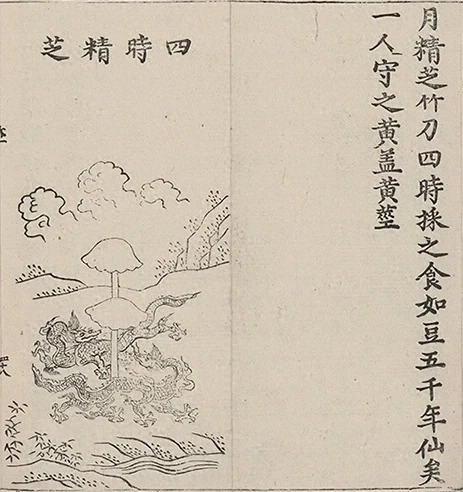 月精芝竹刀四時採之食如豆五千年仙矣
一人守之黄盖黄莖
四時精芝